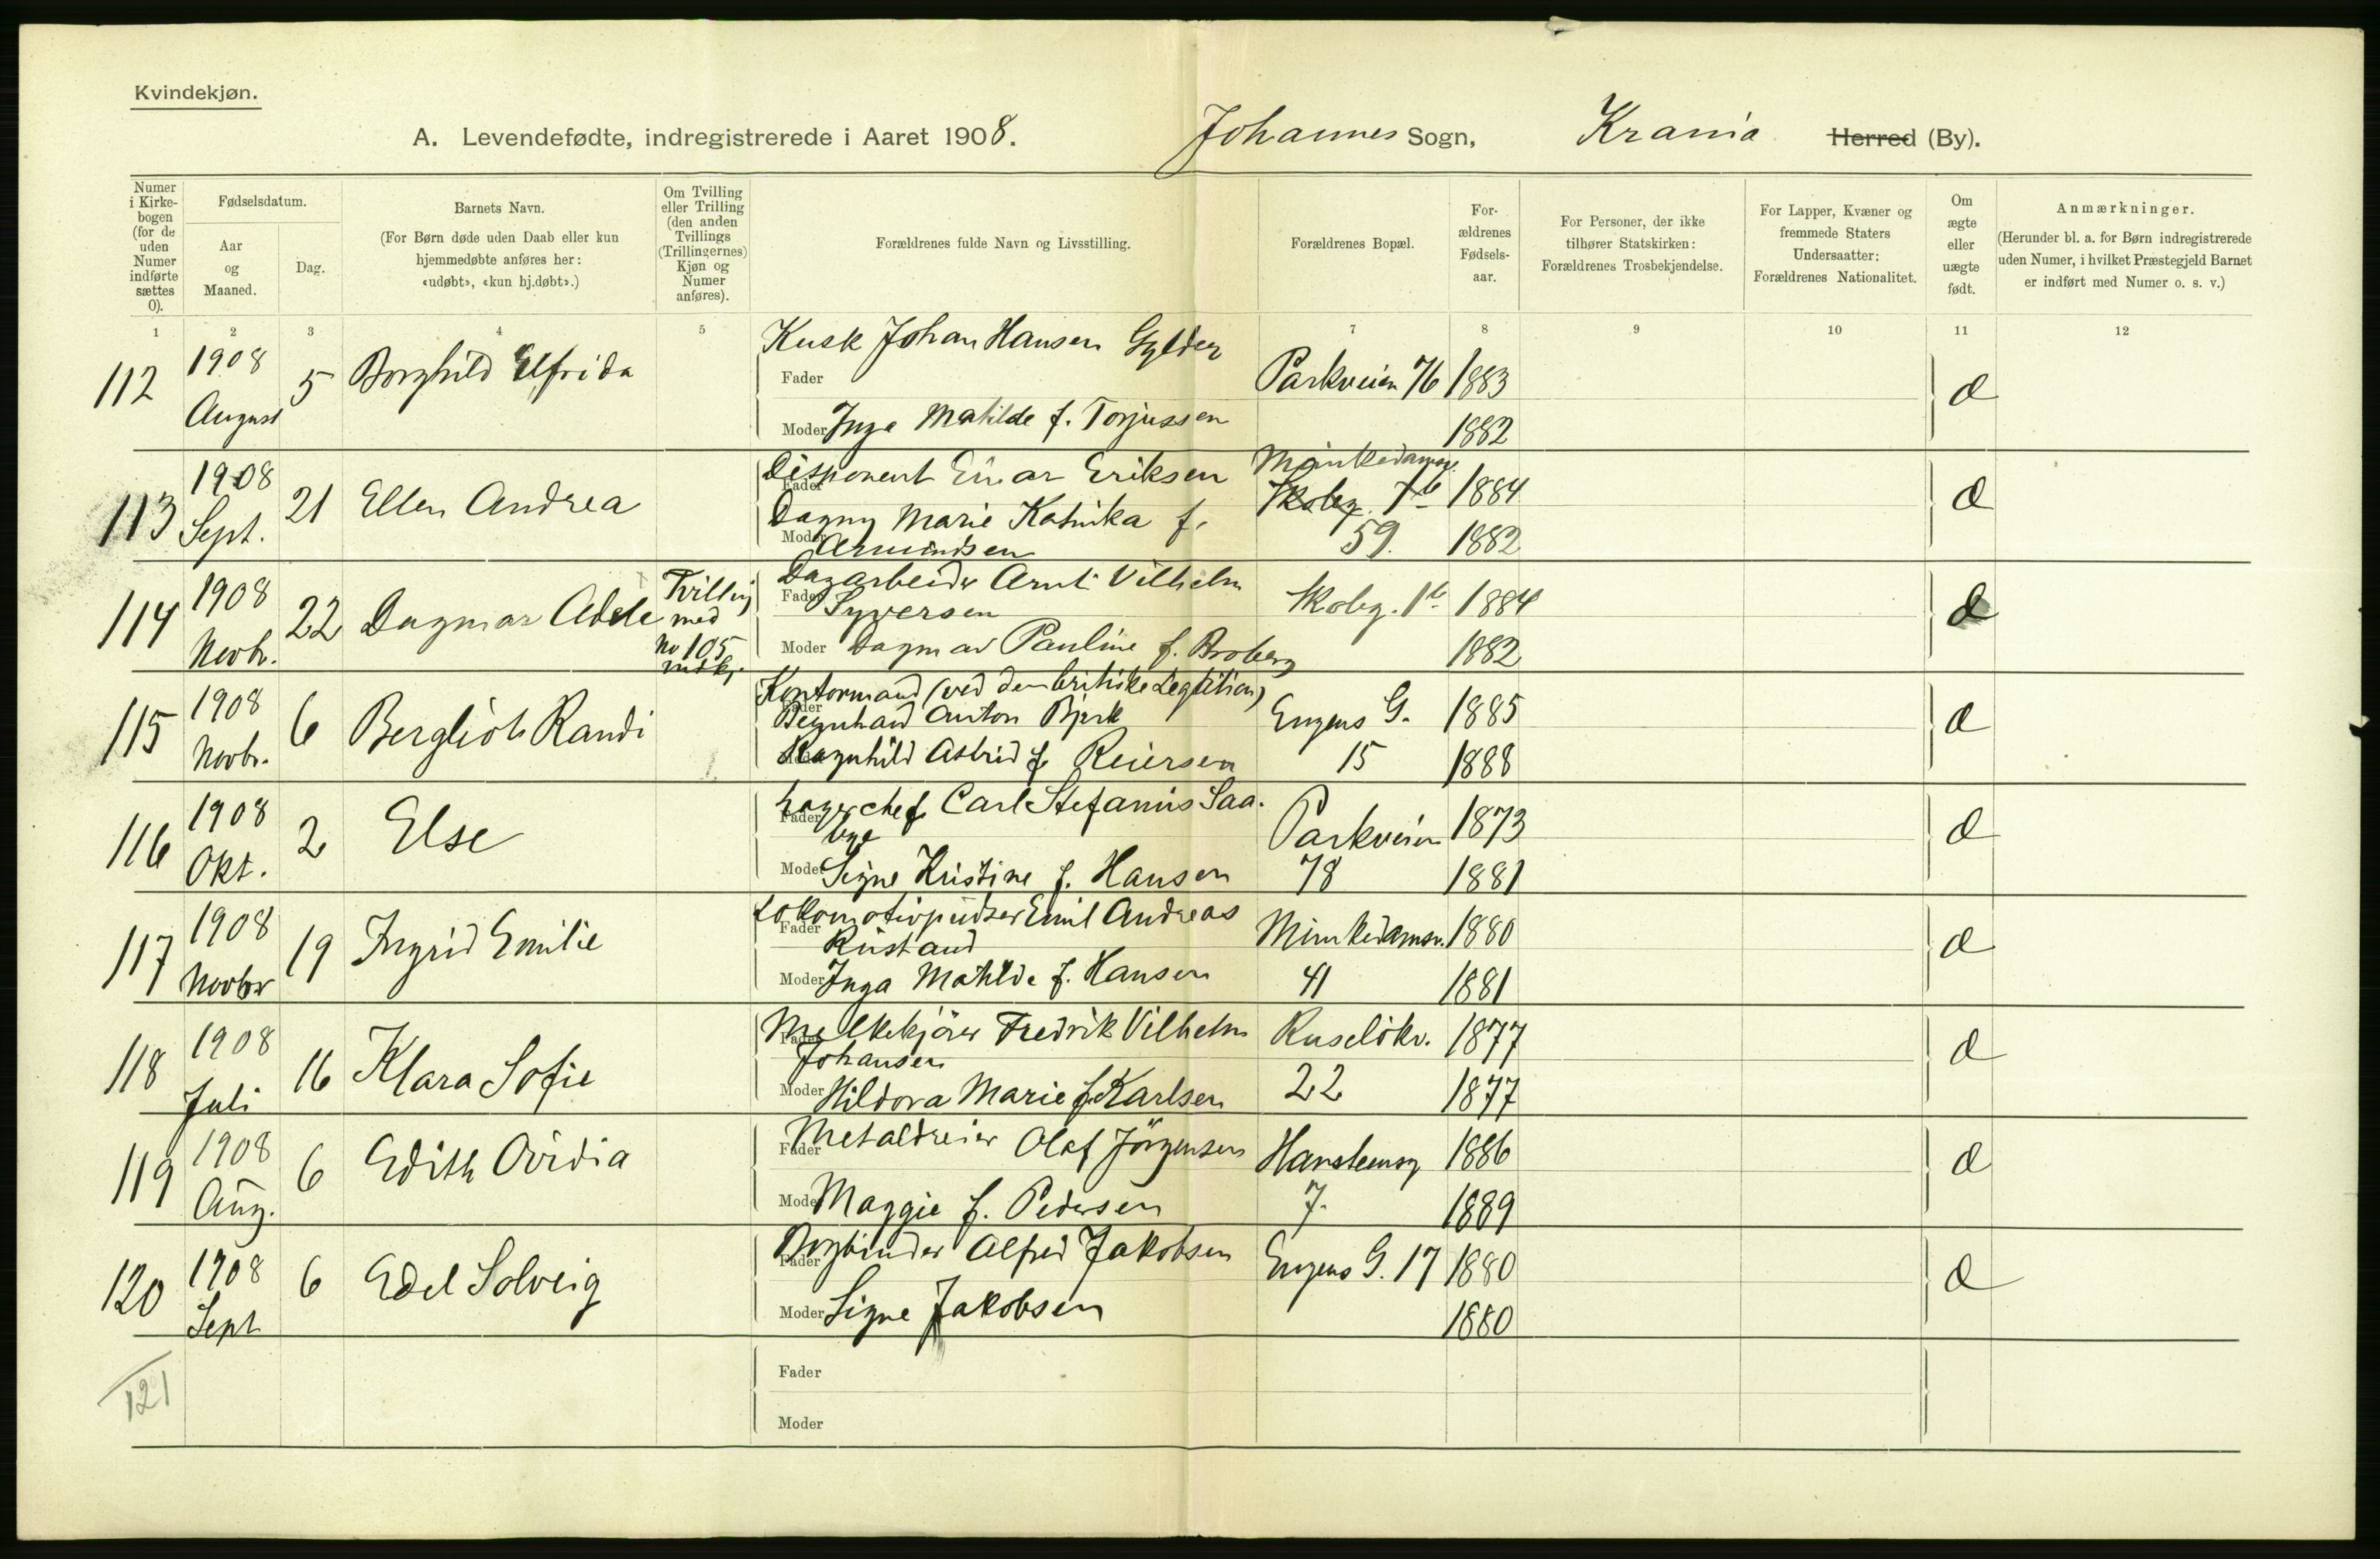 Kvindekjøn.
A. Levendefødte, indregistrerede i Aaret 1908. Johannes Sogn, Krania Herred (By).
Numer i Kirke-bogen (for de uden Numer indførte sættes 0).
Fødselsdatum.
Aar og Maaned.
Dag.
Barnets Navn.
(For Børn døde uden Daab eller kun
hjemmedøbte anføres her:
«udøbt», «kun hj.døbt».)
Om Tvilling
eller Trilling
(den anden
Tvillings
(Trillingernes)
Kjøn og
Numer
anføres).
Forældrenes fulde Navn og Livsstilling.
Forældrenes Bopæl.
For-
ældrenes
Fødsels-
aar.
For Personer, der ikke
tilhører Statskirken:
Forældrenes Trosbekjendelse.
For Lapper, Kvæner og
fremmede Staters
Undersaatter:
Forældrenes Nationalitet.
Om
ægte
eller
uægte
født.
Anmærkninger.
(Herunder bl. a. for Børn indregistrerede
uden Numer, i hvilket Præstegjeld Barnet
er indført med Numer o. s. v.)
1 2 3 4 5 7 8 9 10 11 12
112 1908 August 5 Borghild Elfrida
Kusk Johan Hansen Gylder
Fader
Parkveien 76 1883
Moder Inga Matilde f. Torjussen
1882
113 1908 Sept. 21 Ellen Andrea
Disponent Einar Eriksen
Fader
Munkedamsv.
Skobg. 7b 1884
Dagny Marie Katinka f.
Moder Armundsen
59. 1882
114 1908 Novbr. 22 Dagmar Adele
Tvilling
med
No 105
mdkj.
Dagarbeider Arnt Vilhelm
Fader Syversen
Skobg. 1b 1884
Moder Dagmar Pauline f. Broberg
1882
115 1908 Novbr. 6 Bergliot Randi
Kontormand (ved den britiske Legation)
Fader
Bernhard Anton Bjerk
Eugens G. 1885
Ragnhild Astrid f. Reiersen
15 1888
116 1908 Okt. 2 Else
Lagerchef Carl Stefanus Saa-
Fader bye
Parkveien 1873
Moder Signe Kristine f. Hansen
78 1881
117 1908 Novbr 19 Ingrid Emilie
Lokomotivpudser Emil Andreas
Fader Rustand
Munkedamsv. 1880
Moder Inga Mathilde f. Hansen
41 1881
118 1908 Juli 16 Klara Sofie
Melkekjører Fredrik Vilhelm
Fader Johansen
Ruseløkv. 1877
Moder Hildora Marie f. Karlsen
22 1877
119 1908 Aug. 6 Edith Ovidia
Metaldreier Olaf Jörgensen
Fader
Hansteensg 1886
Moder Maggie f. Pedersen
7. 1889
120 1908 Sept 6 Edel Solveig
Bogbinder Alfred Jakobsen
Fader
Eugens G. 17 1880
Moder Signe Jakobsen
1880
121
Fader
Moder